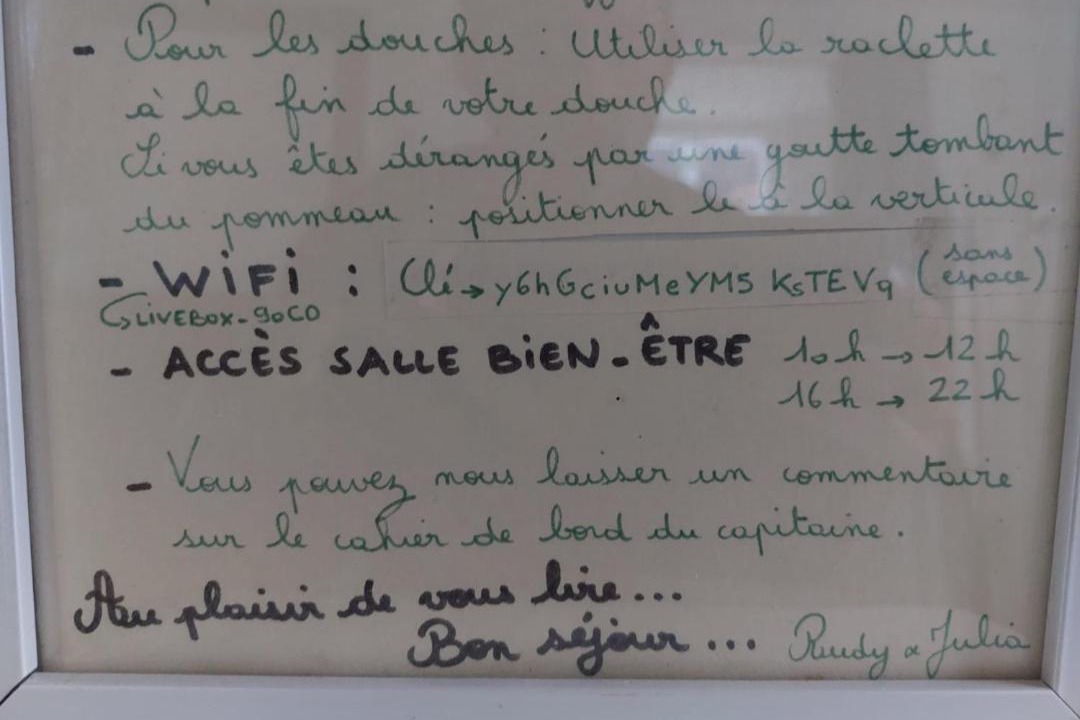 - Pour les douches : Utiliser la raclette
à la fin de votre douche.
Si vous êtes dérangés par une goutte tombant
du pommeau : positionner le à la verticale.
- WiFi : Clé → y6hGciuMeYM5 KsTEVq (sans espace)
↪ LIVEBOX-90C0
- ACCÈS SALLE BiEN-ÊTRE 10h → 12h
16h → 22h
- Vous pouvez nous laisser un commentaire
sur le cahier de bord du capitaine.
Au plaisir de vous lire...
Bon séjour... Rudy & Julia